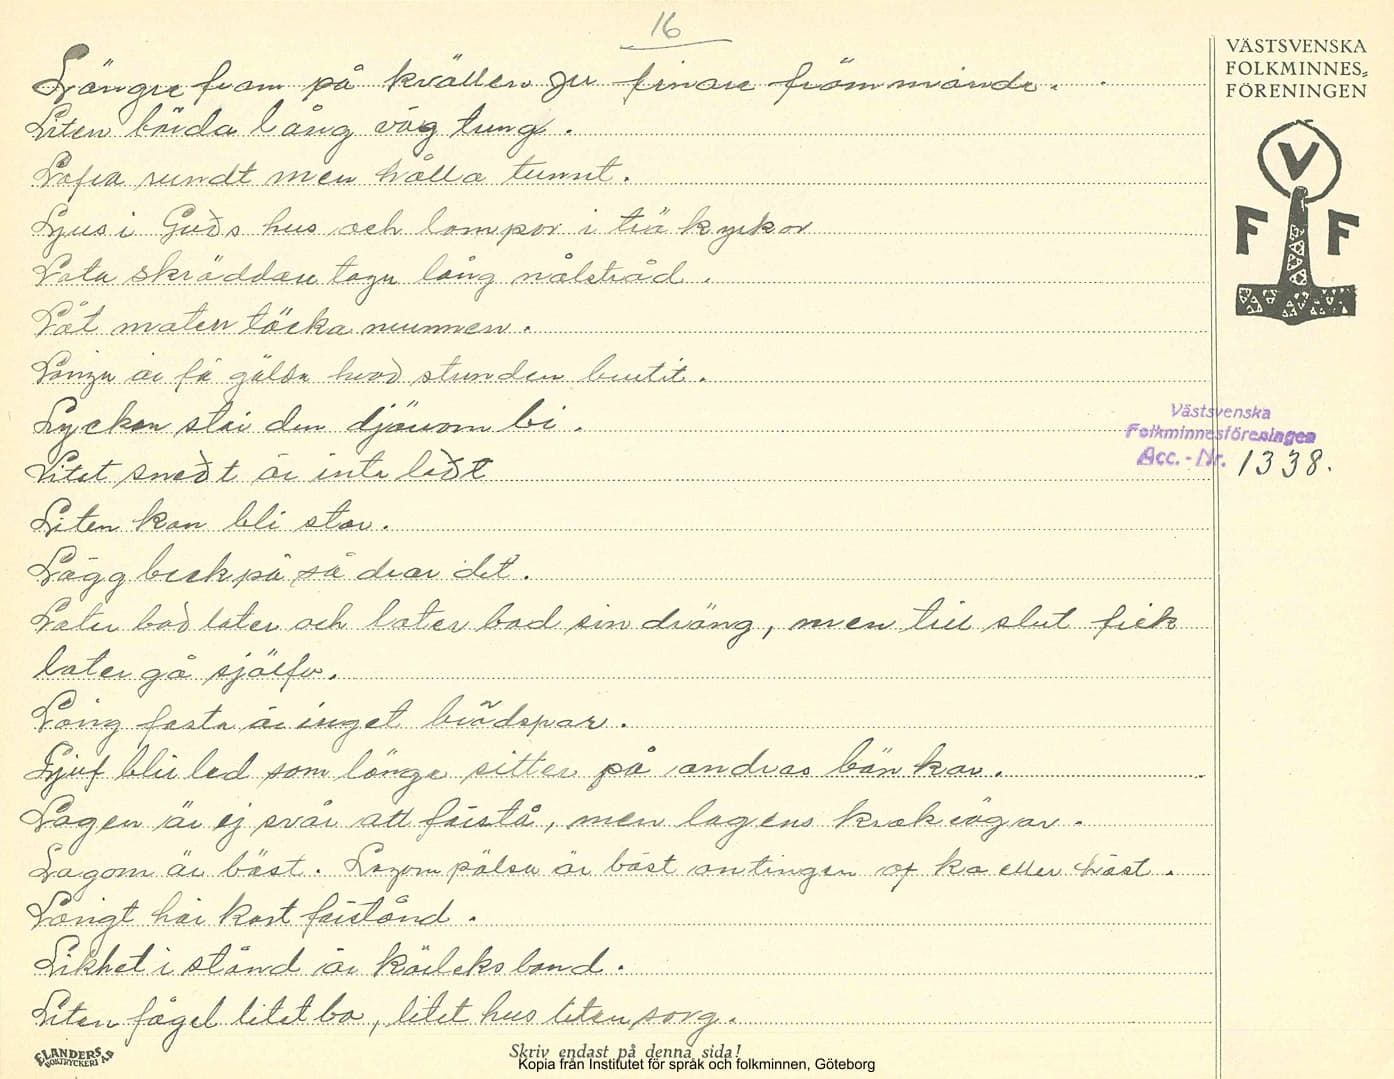 16
VÄSTSVENSKA
FOLKMINNES=
FÖRENINGEN
V
F F
Längre fram på kvällen ju finare främmande.
Liten börda lång väg tung.
Lofva rundt men hålla tunnt.
Ljus i Guds hus och lampor i träkyrkor
Lata skräddare taga lång nålstråd.
Låt maten täcka munnen.
Länge är få gälda hvad stunden brutit.
Lyckan står den djärvom bi.
Litet snedt är inte ledt
Liten kan bli stor.
Lägg beck på så drar det.
Later bad later och later bad sin dräng, men till slut fick
later gå sjölfv.
Lång fasta är inget brödspar.
Ljuf blir led som länge sitter på andras bänkar.
Lagen är ej svår att förstå, men lagens krokvägar.
Lagom är bäst. Lagom pälsa är bäst antingen af ko eller häst.
Långt hår kort förstånd.
Likhet i stånd är kärleksband.
Liten fågel litet bo, litet hus liten sorg.
Västsvenska
Folkminnesföreningen
Acc.-Nr. 1338.
ELANDERS
BOKTRYCKERI AB
Skriv endast på denna sida!
Kopia från Institutet för språk och folkminnen, Göteborg